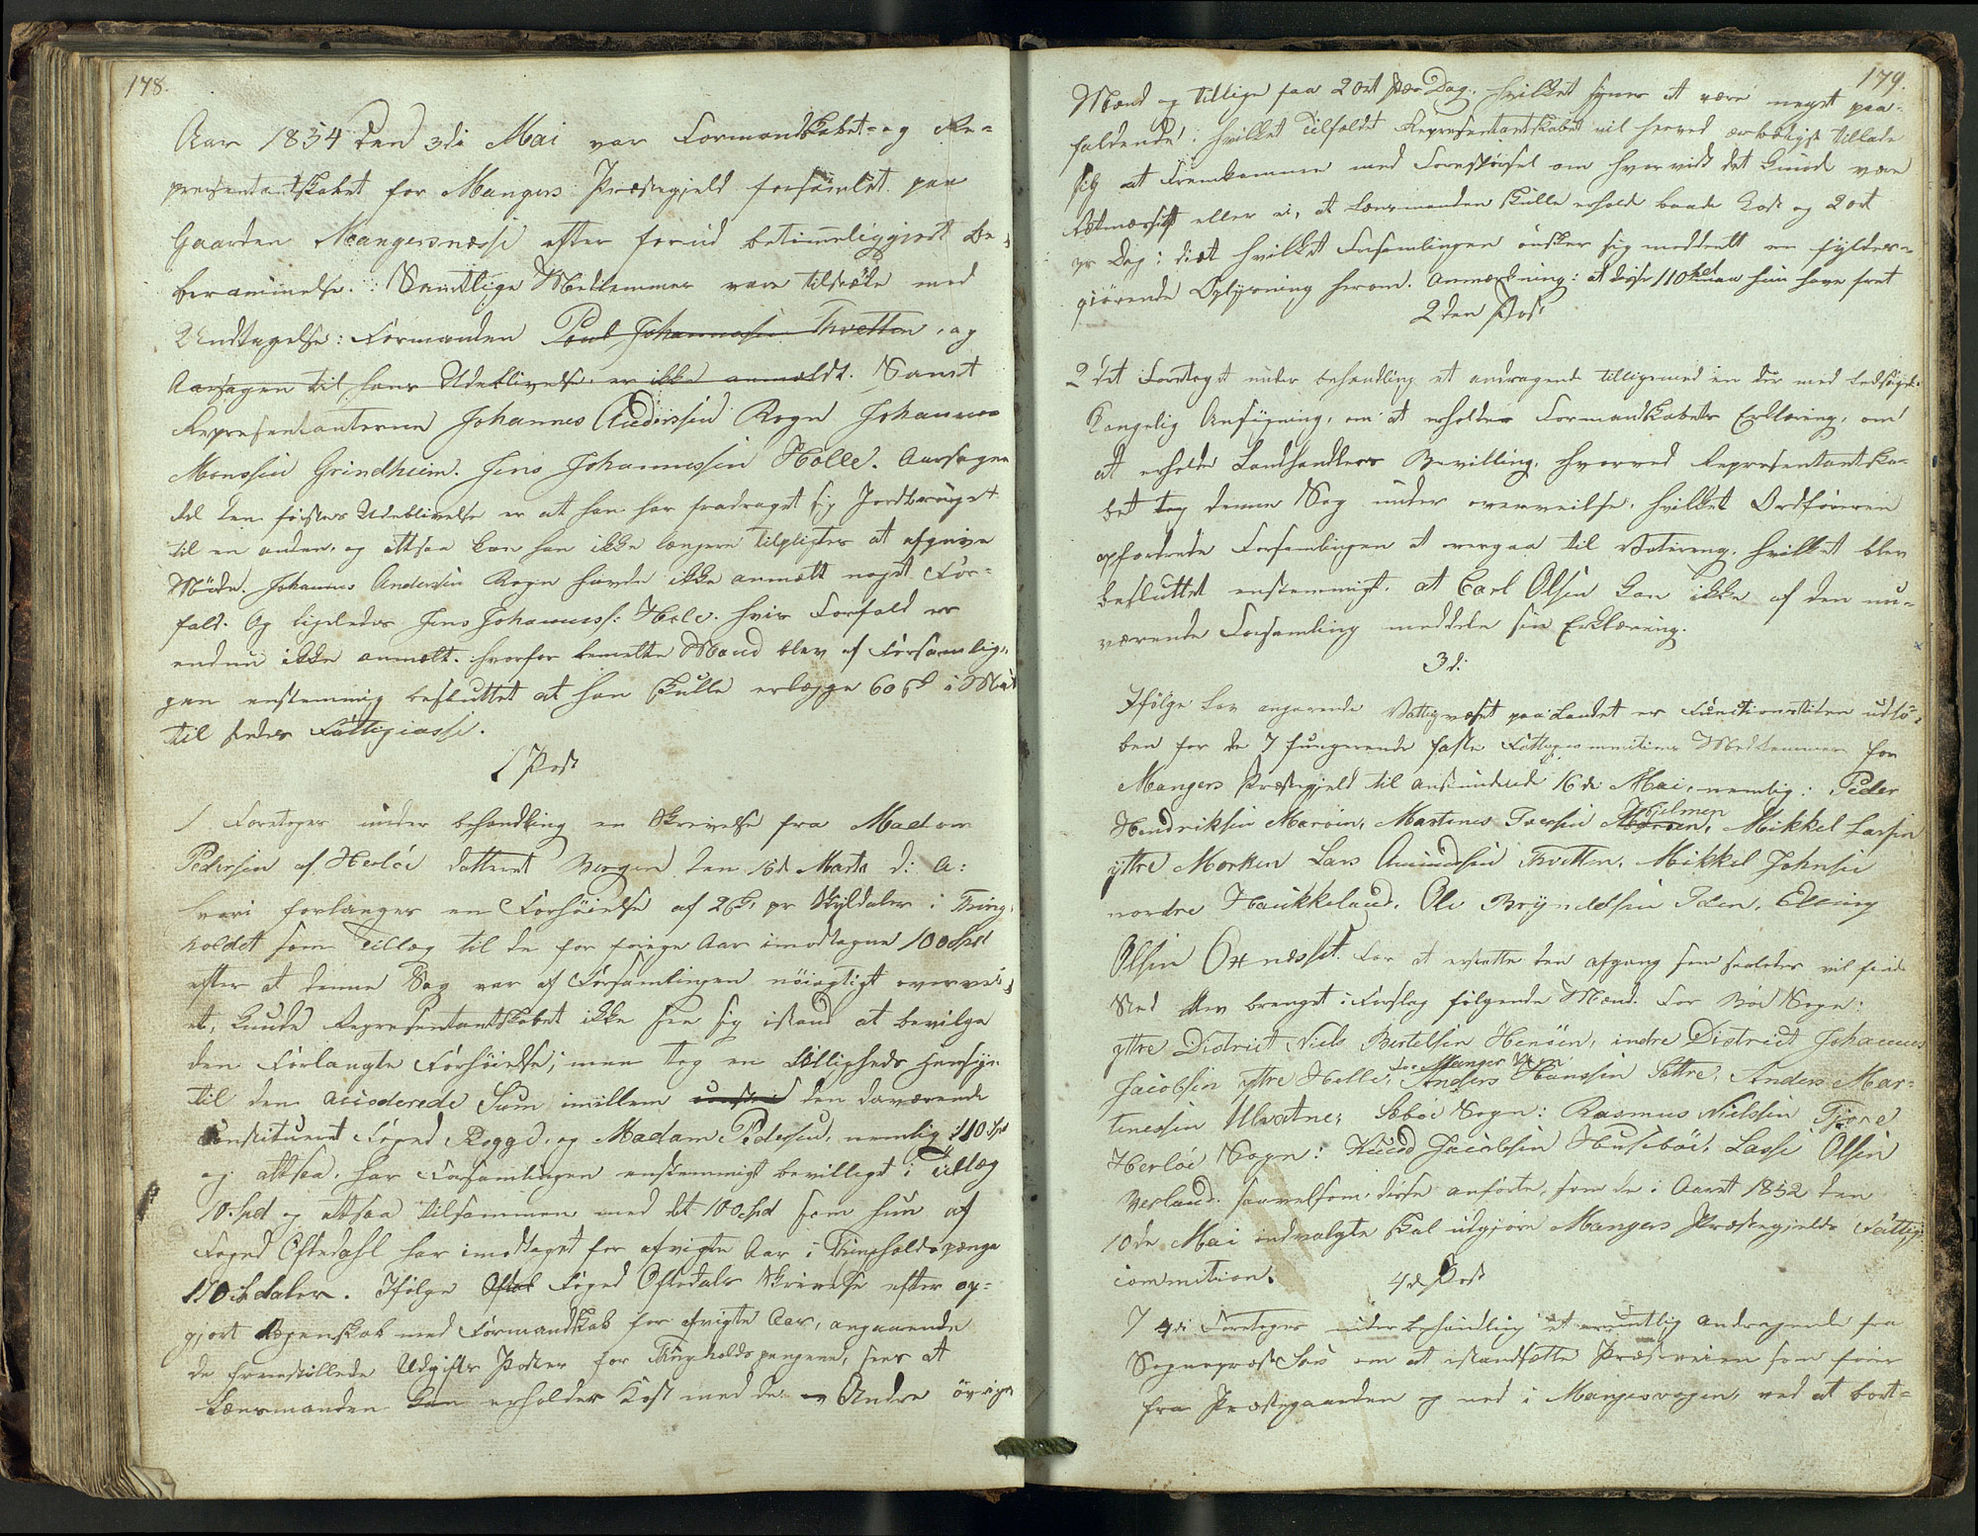 178.
Aar 1854 den 3die Mai var Formandskabet- og Re-
præsentantskabet for Mangers Præstegjeld forsamlet paa
Gaarden Mangersnæsse efter forud betimeliggjort Be-
berammelse. Samtlige Medlemmer vare tilstæde med
Undtagelse: Formanden Poul Johannessen Tvetten, og
Aarsagen til hans Udeblivelse er ikke anmældt. Samt
Representanterne Johannes Andersen Rogn Johannes
Monssen Grindheim. Jens Johannessen Holle. Aarsagen
til den førstes Udeblivelse er at han har fradraget sig Jordbruget
til en anden, og altsaa kan han ikke længere tilpligtes at afgive
Møde. Johannes Andersen Rogn havde ikke anmældt noget For-
fald. Og ligeledes Jens Johanness: Hole. hvis Forfald er
endnu ikke anmeldt. hvorfor bemeldte Mand blev af Forsamlin-
gen enstemmig besluttet at han skulle erlægge 60 s i Mulct
til Stedets Fattigcasse.
1 Post
1 Foretoges under behandling en Skrivelse fra Madam
Pedersen af Herløe datteret Bergen den 16de Marts d: A:
hvori forlanges en Forhøielse af 2 s pr Skyldaler i Thing-
holdet som Tillæg til de for forige Aar imodtagne 100 Spd
efter at denne Sag var af Forsamlingen nöiagtigt overvei-
et, kunde Representantskabet ikke see sig istand at bevilge
den forlangte Forhöielse; men tog en billigheds hensyn
til den accoderede Sum imellem den daværende
Constitueret Foged Rogge, og Madam Pedersen, nemlig 110 Spd
og altsaa, har Forsamlingen enstemmigt bevilliget i Tillæg
10 Spd og altsaa tilsammen med det 100 Spd som hun af
Foged Oftedahl har imodtaget for afvigte Aar i Thingholdspenge
110 Spdaler. Ifölge Foged Oftedals Skrivelse efter op-
gjort Regenskab med Formandskab for afvigte Aar, angaaende
de fremstillede Udgifts Poster for Thingholdspengene, sees at
Lænsmanden kan erholder Kost med de Andre øvrige
179.
Mænd og tillige faa 2 ort per Dag. hvilket synes at være meget paa-
faldende: hvilket Tilfældet Representantskabet vil herved ærbødigst tillade
sig at fremkomme med Forespörsel om hvorvidt det kunde være
Retmæssigt eller ei, at Lensmanden skulle erholde baade Kost og 2 ort
pr Dag: diet hvilket Forsamlingen önsker sig meddeelt en fyldest-
gjörende Oplysning herom. Anmærkning: at disse 110 Spd maa hun have fret
2den Post
2det Foretoges under behandling et andragende tilligemed en der med ledsaget
Kongelig Ansögning, om at erholde Formandskabets Erklæring, om
at erholde Landhandlers Bevilling, hvorved Representantska-
bet tog denne Sag under overveielse, hvilket Ordföreren
opfordrede Forsamlingen at overgaa til Votering. hvilket blev
besluttet enstemmigt, at Carl Olsen kan ikke af den nu-
værende Forsamling meddele sin Erklæring.
3d:
Ifölge Lov angaaende Fattigvæset paa Landet er Functionstiden udlö-
ben for de 7 fungerende faste Fattigcommitions Medlemmer for
Mangers Præstegjeld til anstundende 16de Mai, nemlig: Peder
Hendriksen Maröen, Martines Iversen Hjelmen, Mikkel Larsen
yttre Morken Lars Amundsen Tvetten, Mikkel Johnsen
nordre Haukkeland, Ole Brynildsen Iden, Elling
Olsen Oxnæsset. For at erstatte den afgang som saaledes vil finde
Sted blev bragt i Forslag fölgende Mænd. For Böe Sogn:
yttre District Niels Bertelsen Henöen, indre District Johannes
Jacobsen yttre Helle, for Manger Anders Hanssen Sættre, Anders Mar-
tinessen Ulvatne; Sæbö Sogn: Rasmus Nielsen Fjore
Herlöe Sogn: Knud Jacobsen Husebö, Lasse Olsen
Berland. saavelsom disse anförte, som de i Aaret 1852 den
10de Mai indvalgte skal udgjöre Mangers Præstegjelds Fattig-
commition.
4de Post
7 4de Foretoges under behandling et mundtlig andragende fra
Sognepræst om at istandsætte Præsteveien som fører
fra Præstegaarden og ned i Mangersvogen, ved at bort-